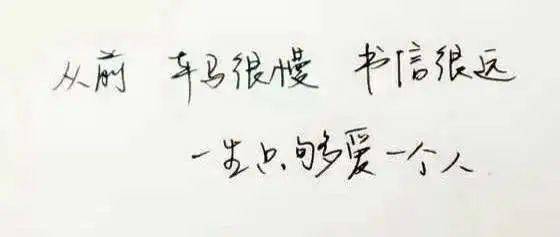 从前 车马很慢 书信很远
一生只够爱一个人